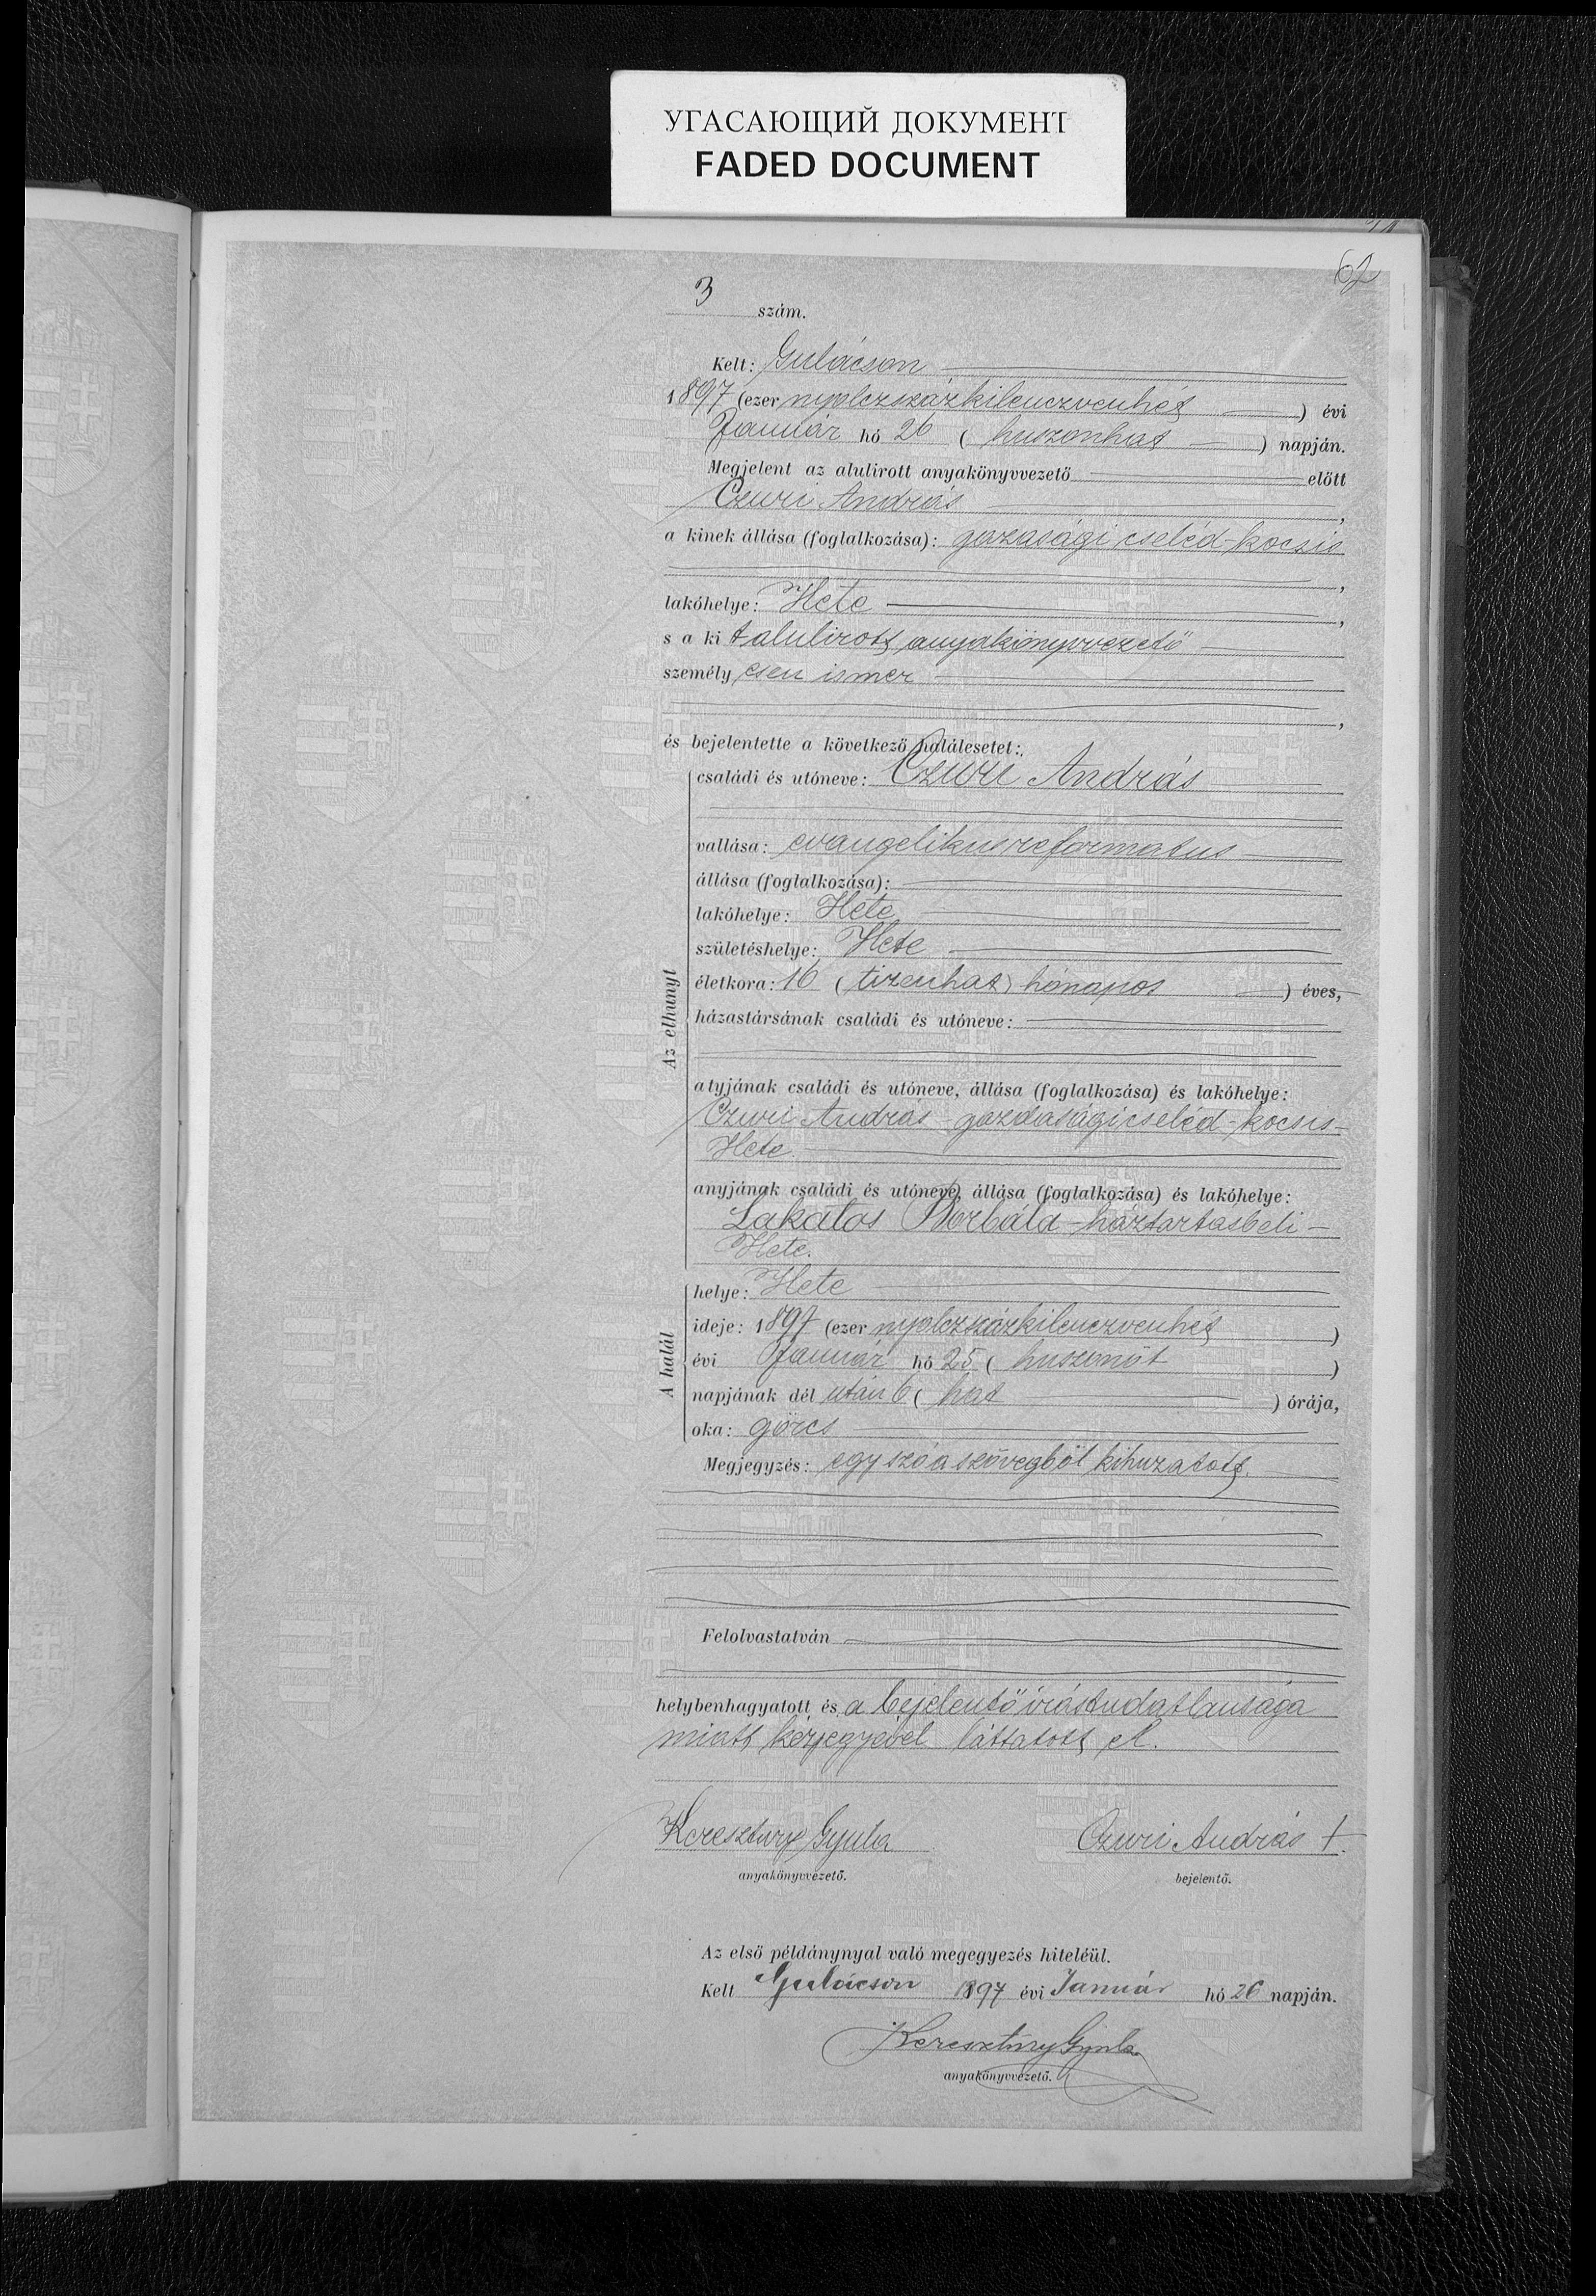 УГАСАЮЩИЙ ДОКУМЕНТ
FADED DOCUMENT
62
3 szám.
Kelt: Gulácson
1897 (ezer nyolczszázkilenczvenhét) évi
Január hó 26 (huszonhat) napján.
Megjelent az alulirott anyakönyvvezető előtt
Czuri András,
a kinek állása (foglalkozása): gazasági cseléd-kocsis
,
lakóhelye: Hete,
s a kit alulirott anyakönyvvezető
személyesen ismer
,
és bejelentette a következő halálesetet:
Az elhunyt
családi és utóneve: Czuri András
vallása: evangelikus reformatus
állása (foglalkozása):
lakóhelye: Hete
születéshelye: Hete
életkora: 16 (tizenhat) hónapos ) éves,
házastársának családi és utóneve:
atyjának családi és utóneve, állása (foglalkozása) és lakóhelye:
Czuri András - gazdasági cseléd-kocsis-
Hete.
anyjának családi és utóneve, állása (foglalkozása) és lakóhelye:
Lakatos Borbála - háztartásbeli -
Hete.
A halál
helye: Hete
ideje: 1897 (ezer nyolczszázkilenczvenhét)
évi Január hó 25 (huszonöt)
napjának dél után 6 (hat) órája,
oka: görcs
Megjegyzés: egy szó a szövegből kihuzatott.
Felolvastatván
helybenhagyatott és a bejelentő irástudatlansága
miatt kézjegyével láttatott el.
Keresztury Gyula Czuri András +.
anyakönyvvezető. bejelentő.
Az első példánynyal való megegyezés hiteléül.
Kelt Gulácson 1897 évi Január hó 26 napján.
Keresztúry Gyula
anyakönyvvezető.